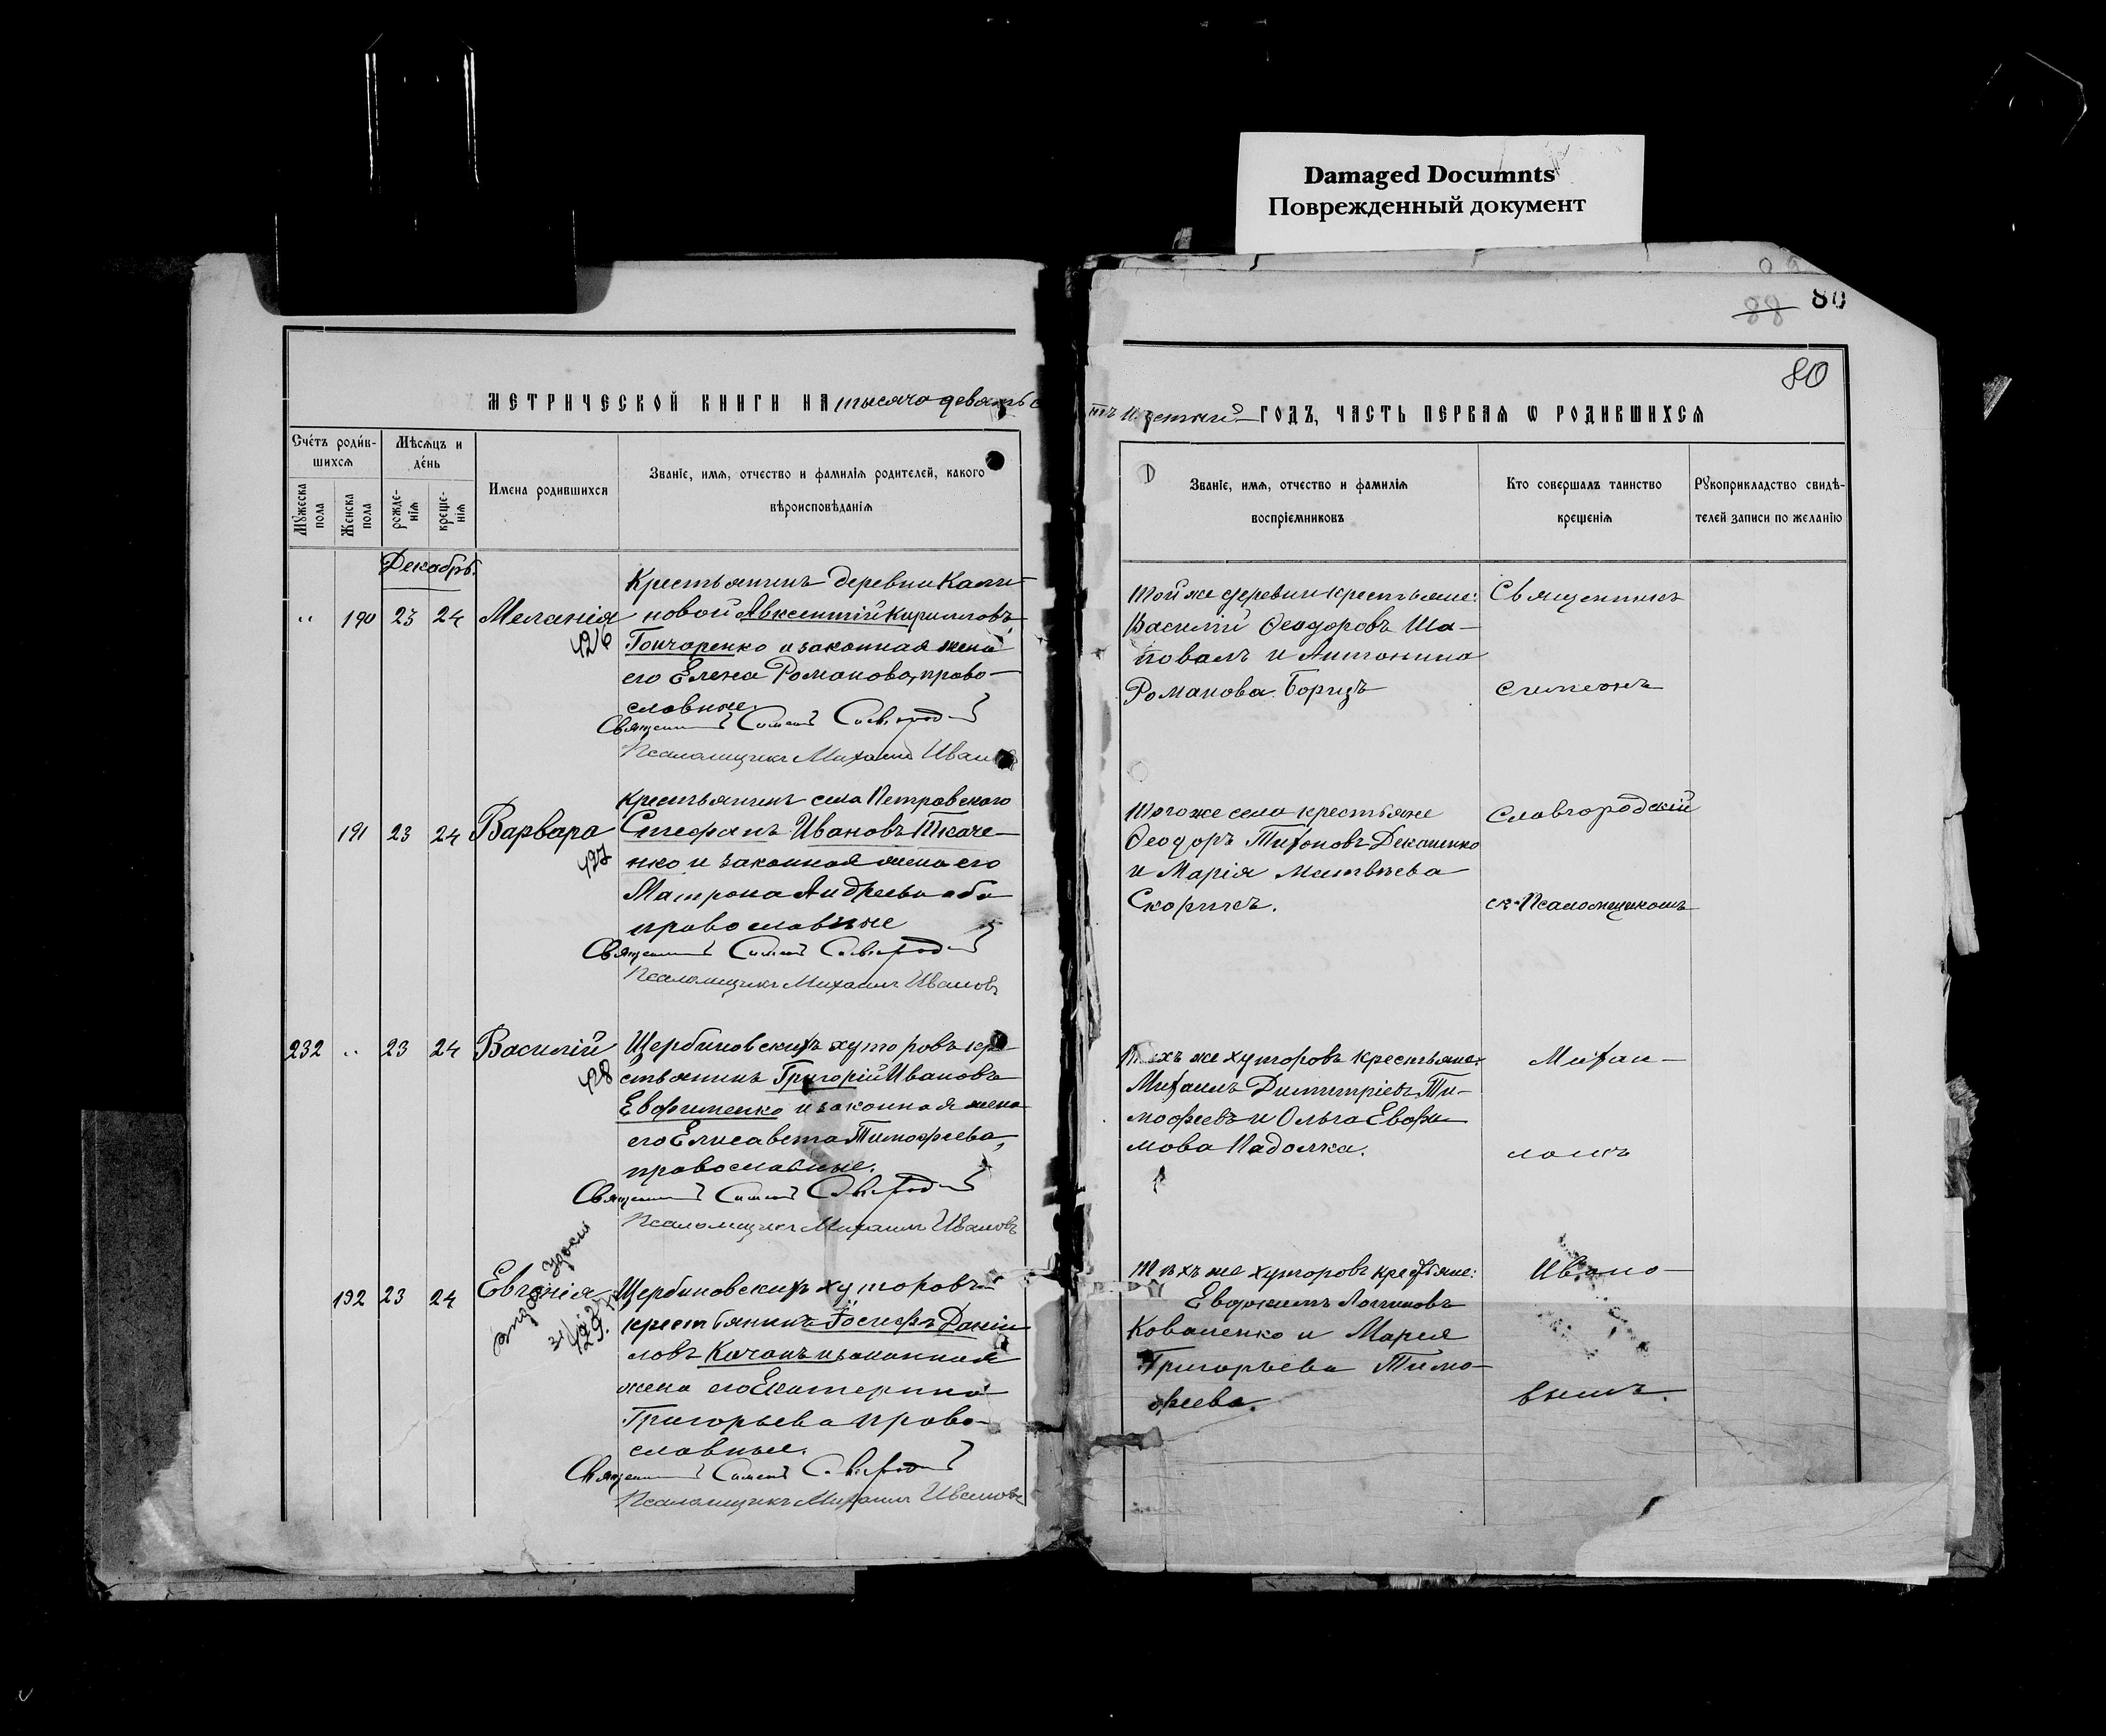 Damaged Documnts
Поврежденный документ
88 80
80
МЕТРИЧЕСКОЙ КНИГИ НА тысяча девять
ГОДЪ, ЧАСТЬ ПЕРВАЯ Ѡ РОДИВШИХСЯ
Счéтъ роди́в-
шихсѧ
Мꙋжеска пола
Женска пола
Мѣсѧцъ и
де́нь
рожде-
нїѧ
креще-
нїѧ
Имена родившихсѧ
Званїе, имѧ, отчество и фамилїѧ родителей, какого
вѣроисповѣданїѧ
Званїе, имѧ, отчество и фамилїѧ
воспрїемниковъ
Кто совершалъ таинство
крещенїѧ
Рꙋкоприкладство свидѣ-
телей записи по желанїю
Декабрь.
„ 190 23 24 Меланія
426
Крестьянинъ деревни Кали-
новой Авксентій Кирилловъ
Гончаренко и законная жена
его Елена Романова, право-
славные.
Священникъ Симеонъ
Псаломщикъ Михаилъ Ивановъ
Той же деревни крестьяне:
Василій Ѳеодоровъ Ша-
повалъ и Антонина
Романова Борицъ
Священникъ
Симеонъ
191 23 24 Варвара
427
Крестьянинъ села Петровского
Стефанъ Ивановъ Ткаче-
нко и законная жена его
Матрона Андреева оба
православные
Священникъ Симеонъ
Псаломщикъ Михаилъ Ивановъ
Того же села крестьяне
Ѳеодоръ Тихоновъ
и Марія Матвѣева
Скорикъ.
Славгородскій
съ Псаломщикомъ
232 „ 23 24 Василій
428
Щербиновскихъ хуторовъ кре-
стьянинъ Григорій Ивановъ
Евфименко и законная жена
его Елисавета Тимофеева,
православные.
Священникъ Симеонъ
Псаломщикъ Михаилъ Ивановъ
Тѣхъ же хуторовъ крестьяне:
Михаилъ Димитріевъ Ти-
мофеевъ и Ольга Евфи-
мова Падолка.
Михаи-
ломъ
192 23 24 Евгенія
429.
Щербиновскихъ хуторовъ
крестьянинъ Іосифъ Даніи-
ловъ Качанъ и законная
жена его Екатерина
Григорьева право-
славные.
Священникъ Симеонъ
Псаломщикъ Михаилъ Ивановъ
Тѣхъ же хуторовъ крестьяне:
Евдокимъ Логиновъ
Коваленко и Мария
Григорьева Тимо-
феева.
Ивано-
вымъ.